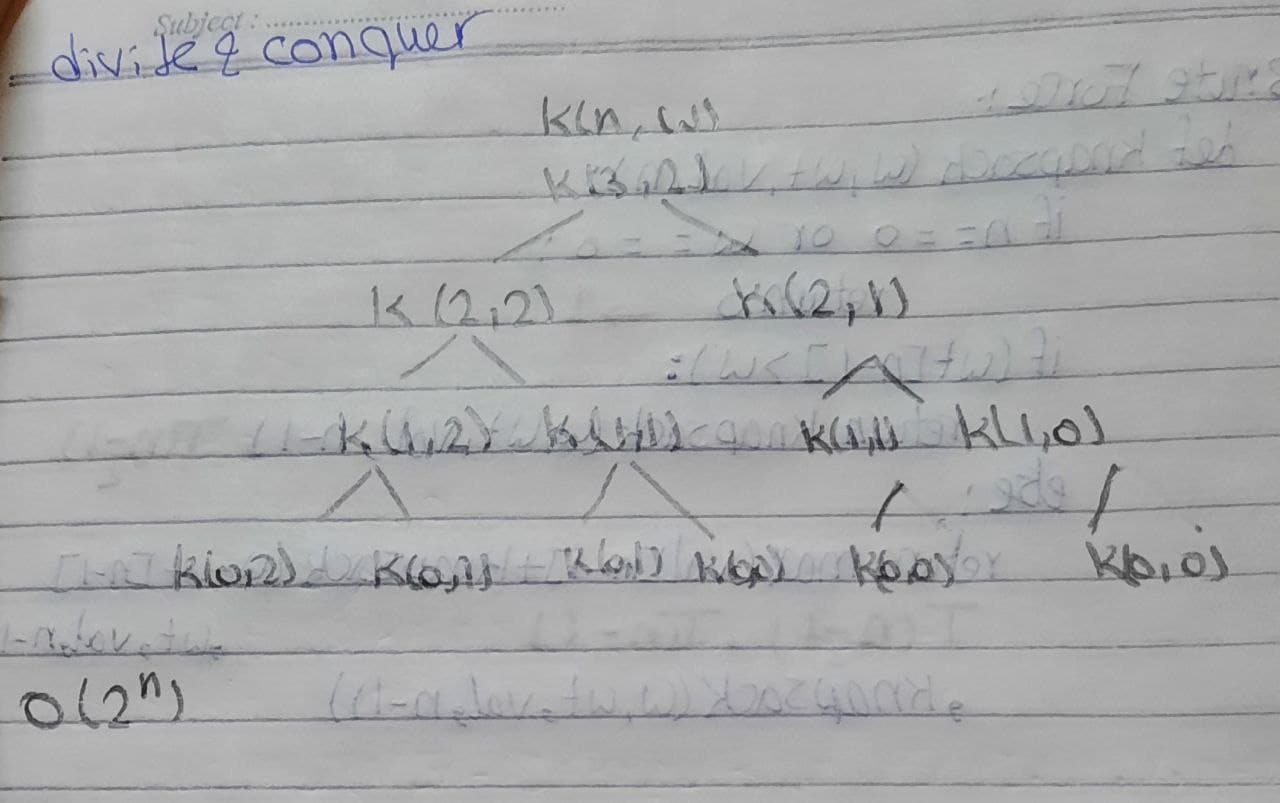 Subject :
divide & conquer
K(n, w)
K(3,2)
K(2,2) K(2,1)
K(1,2) K(1,1) K(1,1) K(1,0)
K(0,2) K(0,1) K(0,1) K(0,0) K(0,0)
O(2ⁿ)